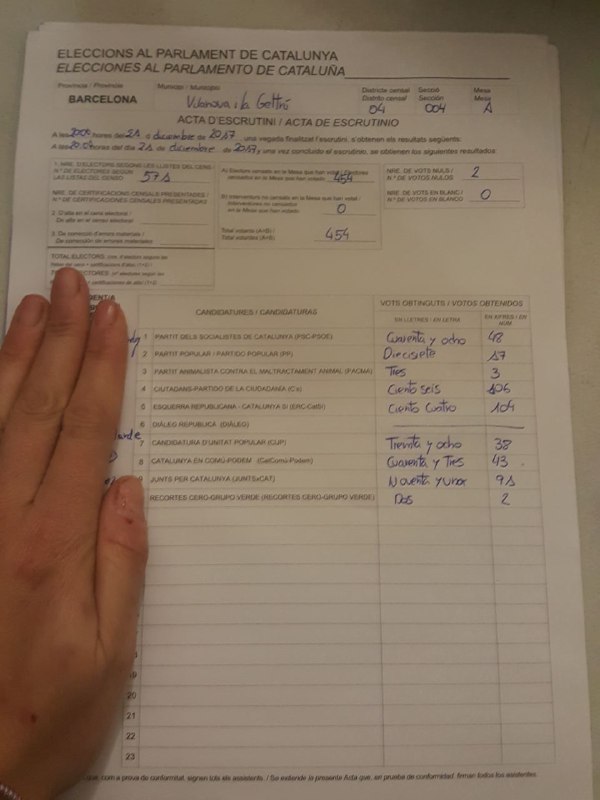 ELECCIONS AL PARLAMENT DE CATALUNYA
ELECCIONES AL PARLAMENTO DE CATALUÑA
Província / Provincia Municipi / Municipio Districte censal Secció Mesa
Distrito censal Sección Mesa
BARCELONA Vilanova i la Geltrú 04 004 A
ACTA D'ESCRUTINI / ACTA DE ESCRUTINIO
A les 20:09 hores del 21 de diciembre de 2017, una vegada finalitzat l'escrutini, s'obtenen els resultats següents:
A las 20:09 horas del día 21 de diciembre de 2017 y una vez concluido el escrutinio, se obtienen los siguientes resultados:
1. NRE. D'ELECTORS SEGONS LES LLISTES DEL CENS
Nº DE ELECTORES SEGÚN
LAS LISTAS DEL CENSO 571
NRE. DE CERTIFICACIONS CENSALS PRESENTADES /
N.º DE CERTIFICACIONES CENSALES PRESENTADAS
2. D'alta en el cens electoral /
De alta en el censo electoral
3. De correcció d'errors materials /
De corrección de errores materiales
A) Electors censats en la Mesa que han votat / Electores
censados en la Mesa que han votado 454
B) Interventors no censats en la Mesa que han votat /
Interventores no censados
en la Mesa que han votado 0
Total votants (A+B) /
Total votantes (A+B) 454
NRE. DE VOTS NULS /
N.º DE VOTOS NULOS 2
NRE. DE VOTS EN BLANC /
N.º DE VOTOS EN BLANCO 0
CANDIDATURES / CANDIDATURAS VOTS OBTINGUTS / VOTOS OBTENIDOS
EN LLETRES / EN LETRA EN XIFRES / EN NÚM.
1 PARTIT DELS SOCIALISTES DE CATALUNYA (PSC-PSOE) Cuarenta y ocho 48
2 PARTIT POPULAR / PARTIDO POPULAR (PP) Diecisiete 17
3 PARTIT ANIMALISTA CONTRA EL MALTRACTAMENT ANIMAL (PACMA) Tres 3
4 CIUTADANS-PARTIDO DE LA CIUDADANÍA (C's) Ciento seis 106
5 ESQUERRA REPUBLICANA - CATALUNYA SÍ (ERC-CatSí) Ciento Cuatro 104
6 DIÁLEG REPUBLICÀ (DIÀLEG)
7 CANDIDATURA D'UNITAT POPULAR (CUP) Treinta y ocho 38
8 CATALUNYA EN COMÚ-PODEM (CatComú-Podem) Cuarenta y Tres 43
9 JUNTS PER CATALUNYA (JUNTSxCAT) Noventa y uno 91
RECORTES CERO-GRUPO VERDE (RECORTES CERO-GRUPO VERDE) Dos 2
20
21
22
23
que, com a prova de conformitat, signen tots els assistents. / Se extiende la presente Acta que, en prueba de conformidad, firman todos los asistentes.